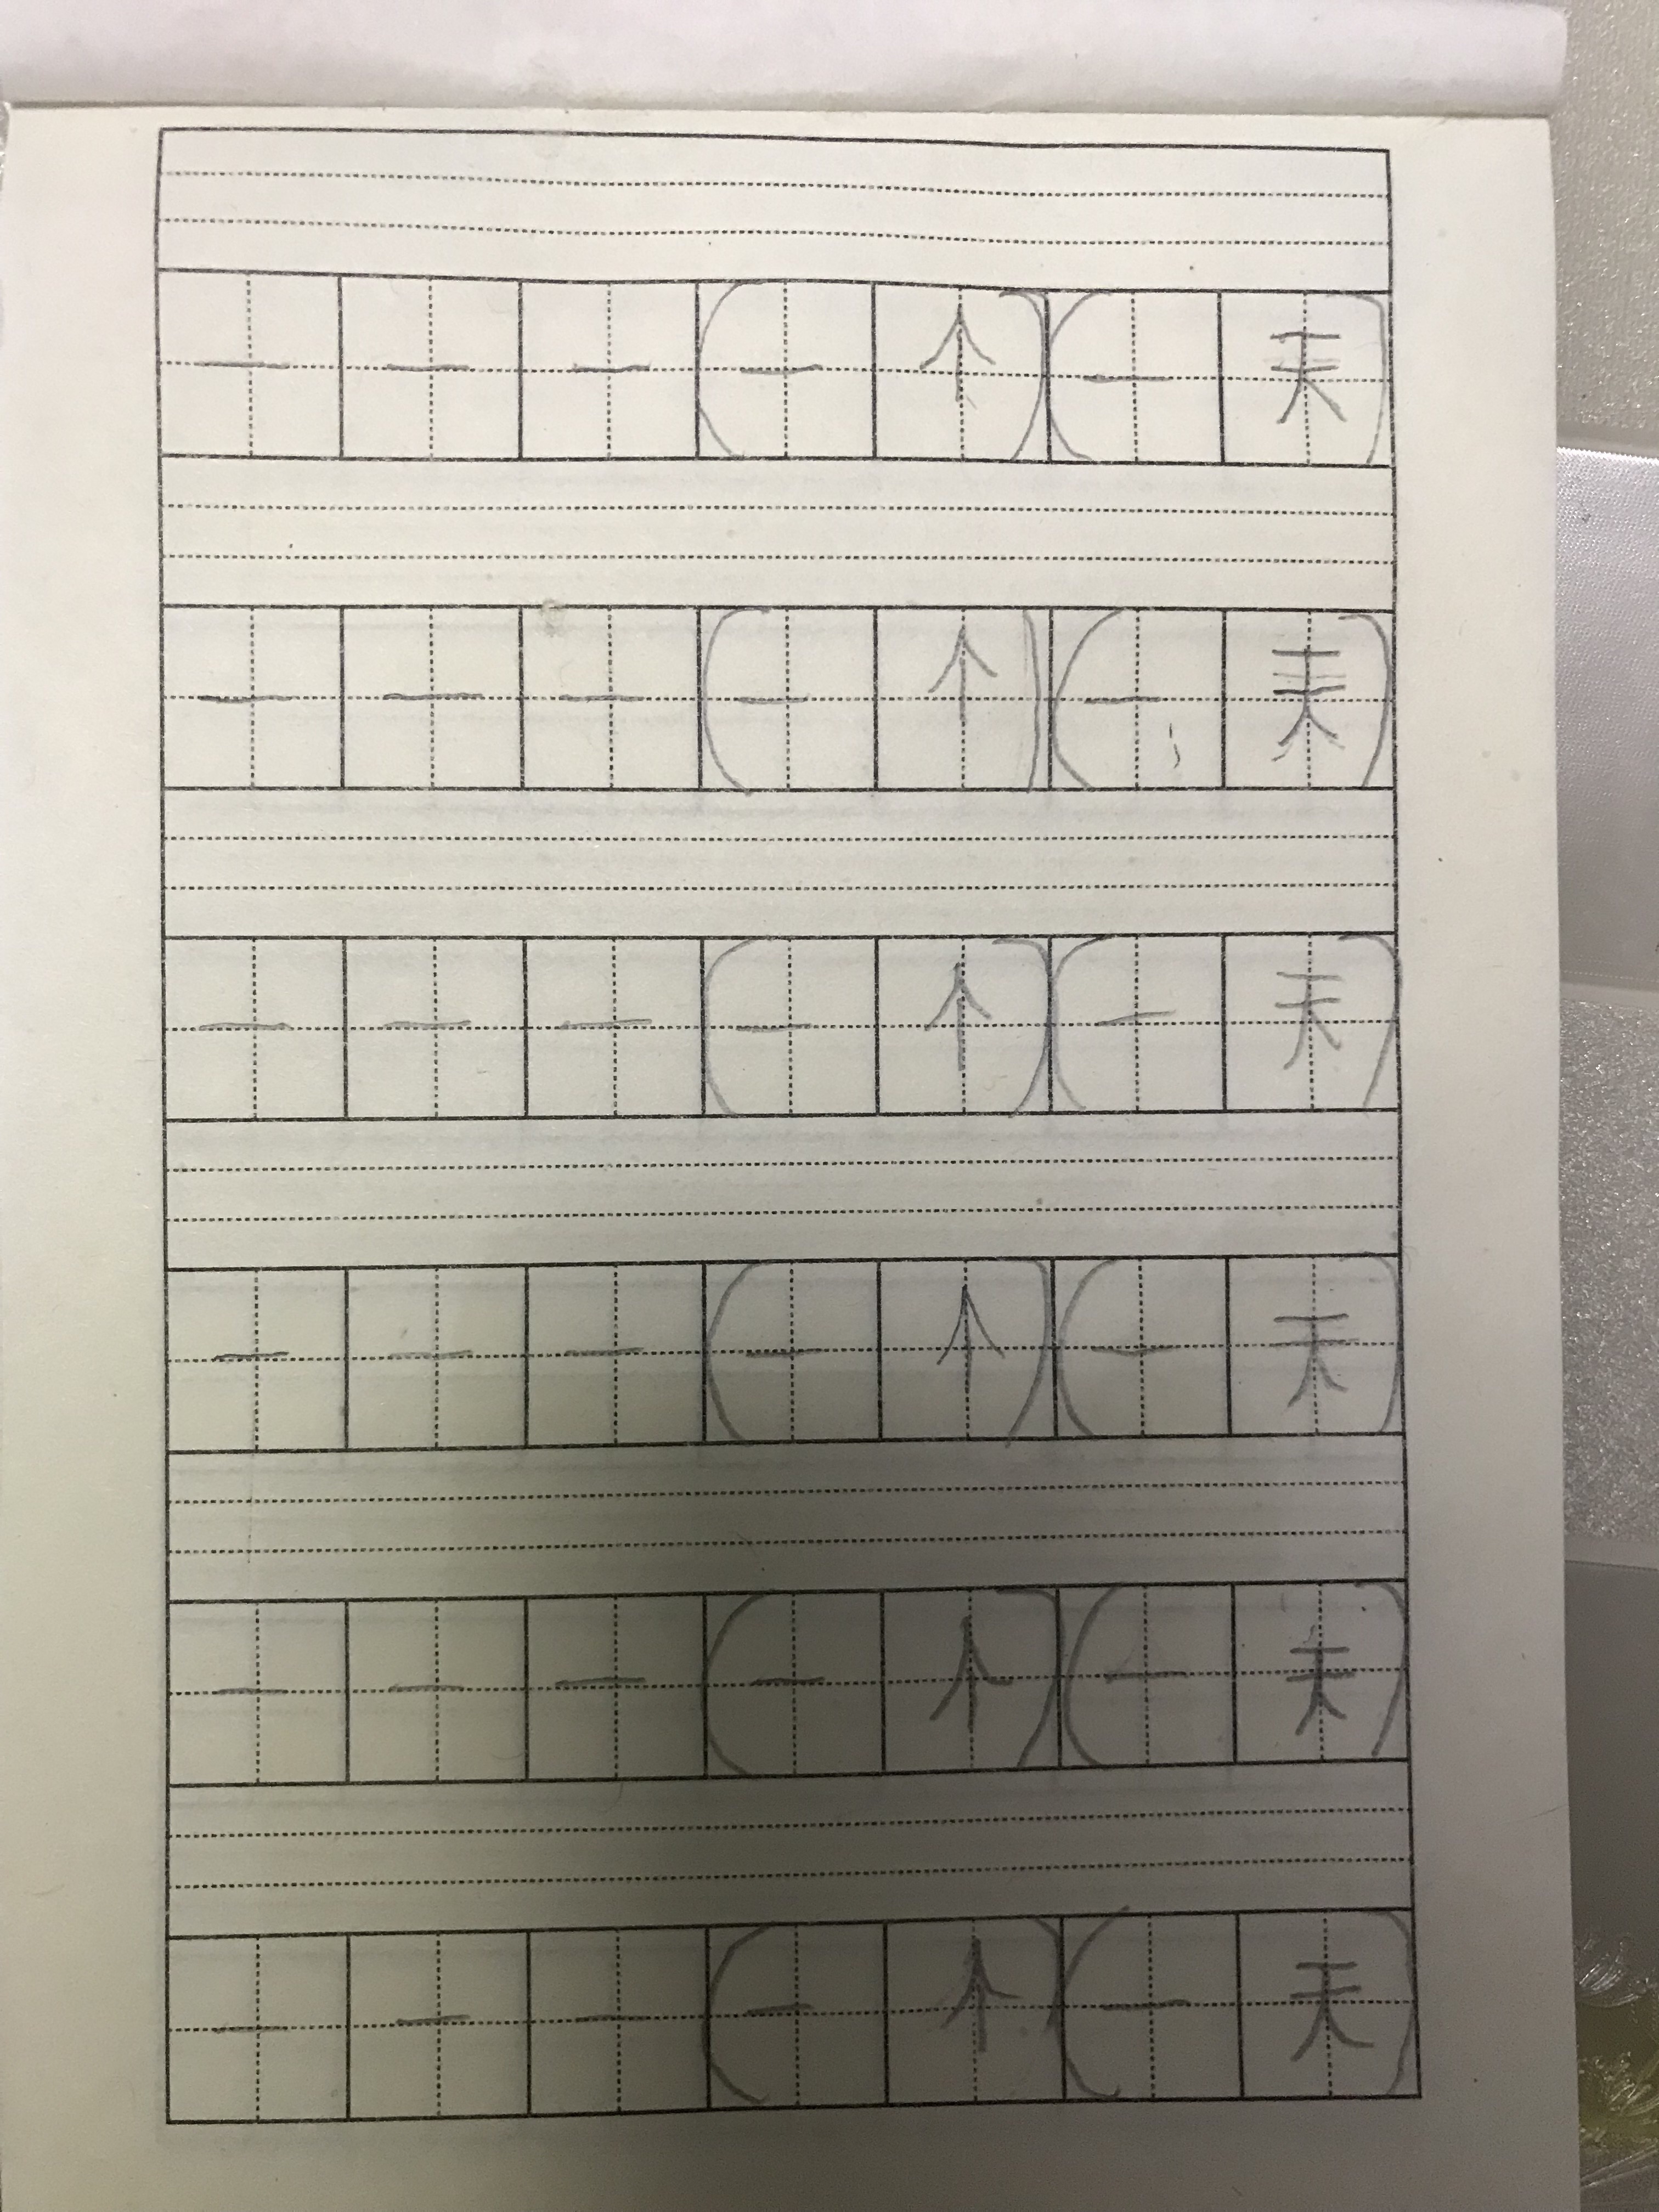 一一一(一个)(一天)
一一一(一个)(一天)
一一一(一个)(一天)
一一一(一个)(一天)
一一一(一个)(一天)
一一一(一个)(一天)